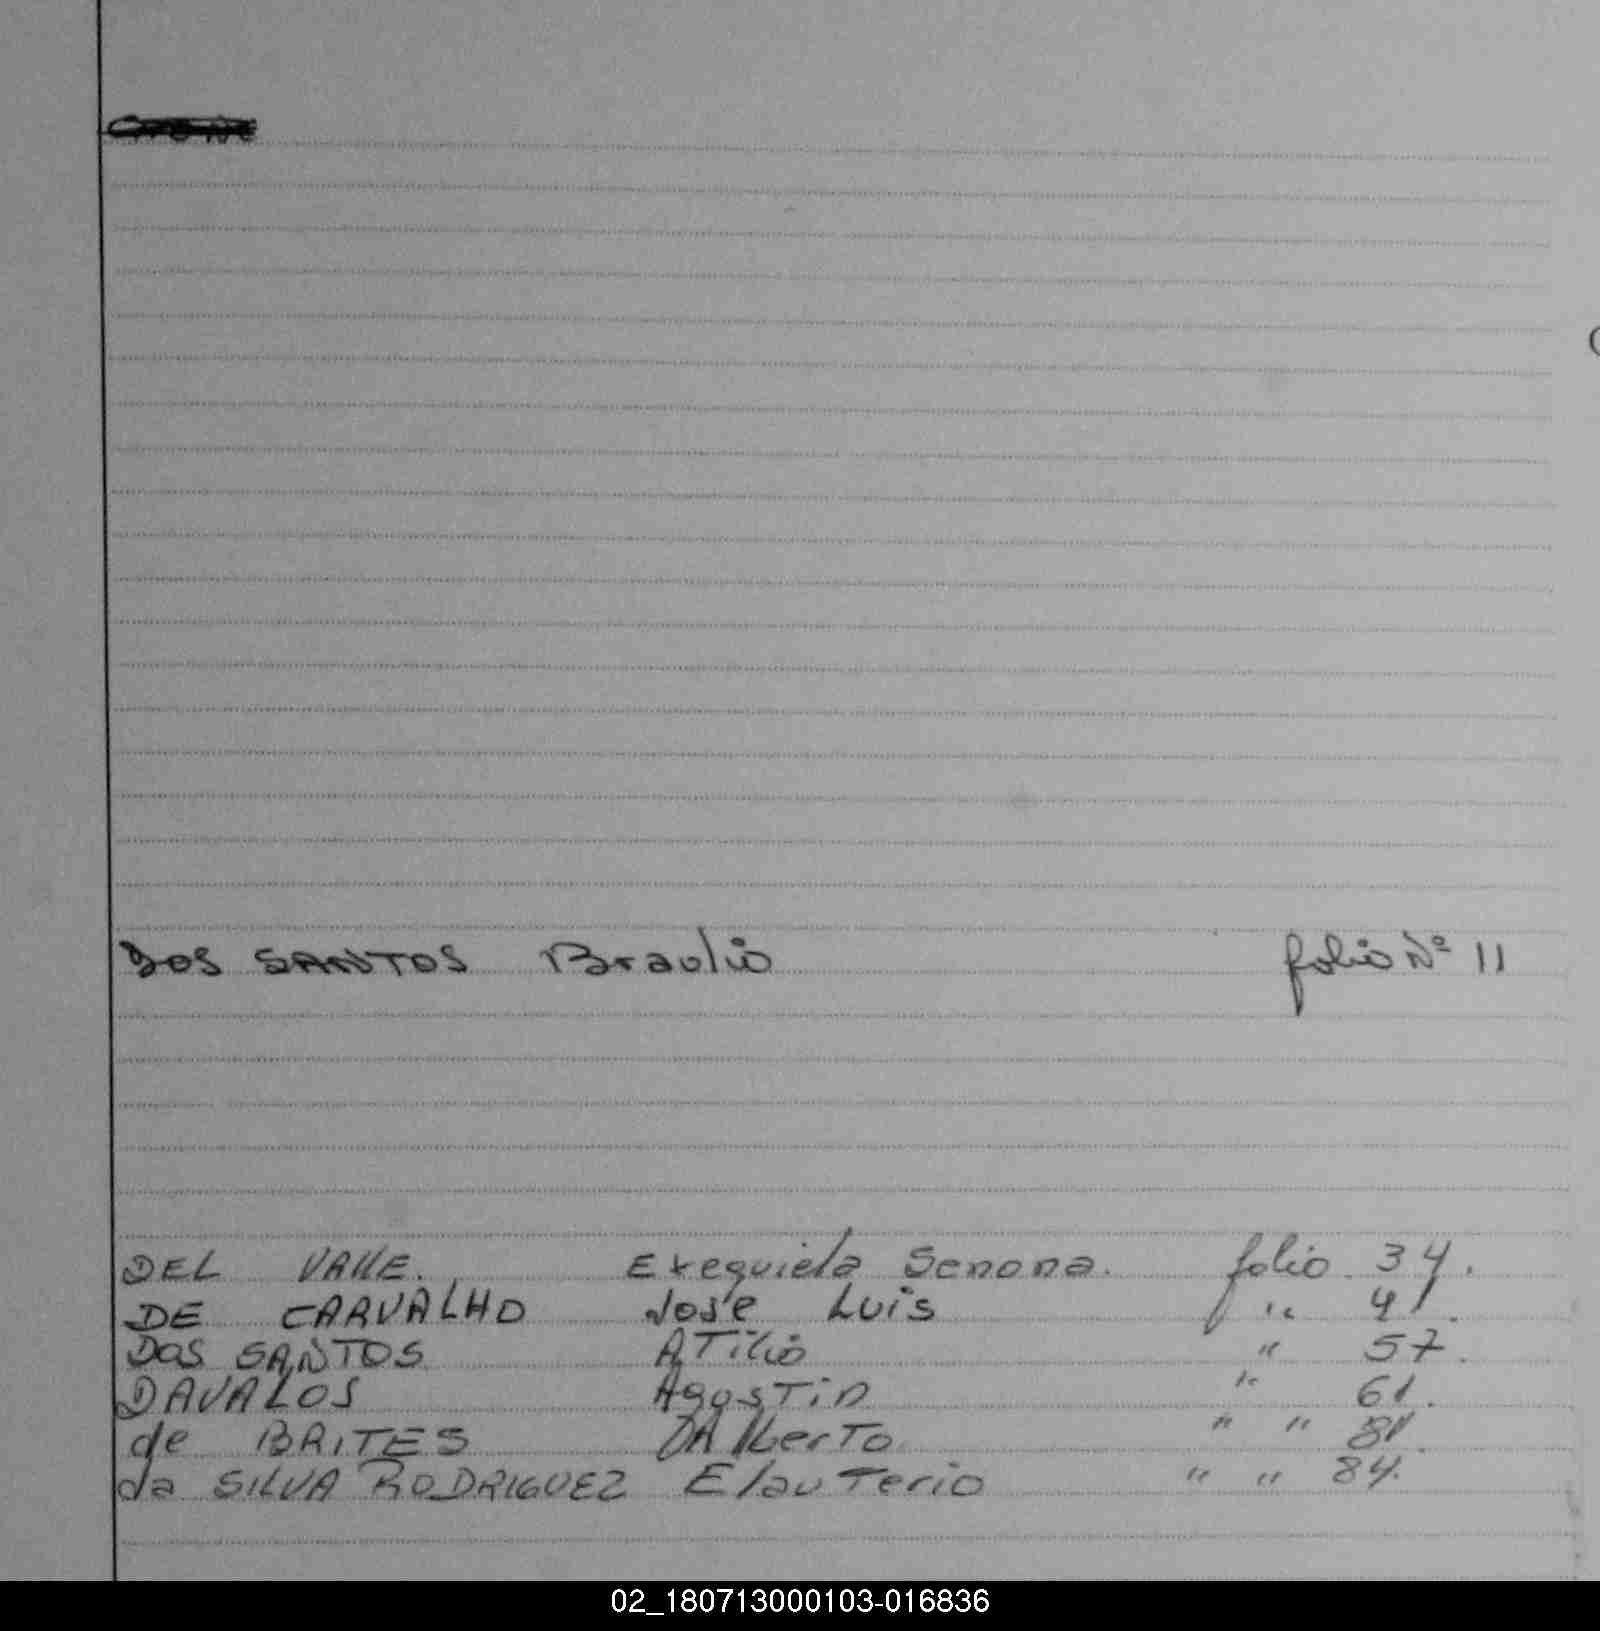 DOS SANTOS Braulio folio Nº 11
DEL VALLE. Exequiela Senona. folio 34.
DE CARVALHO José Luis " 41.
DOS SANTOS ATilio " 57.
DAVALOS AgusTin " 61.
de BRITES DAlberTo " " 81.
da SILVA RODRIGUEZ ElauTerio " " 84.
02_180713000103-016836